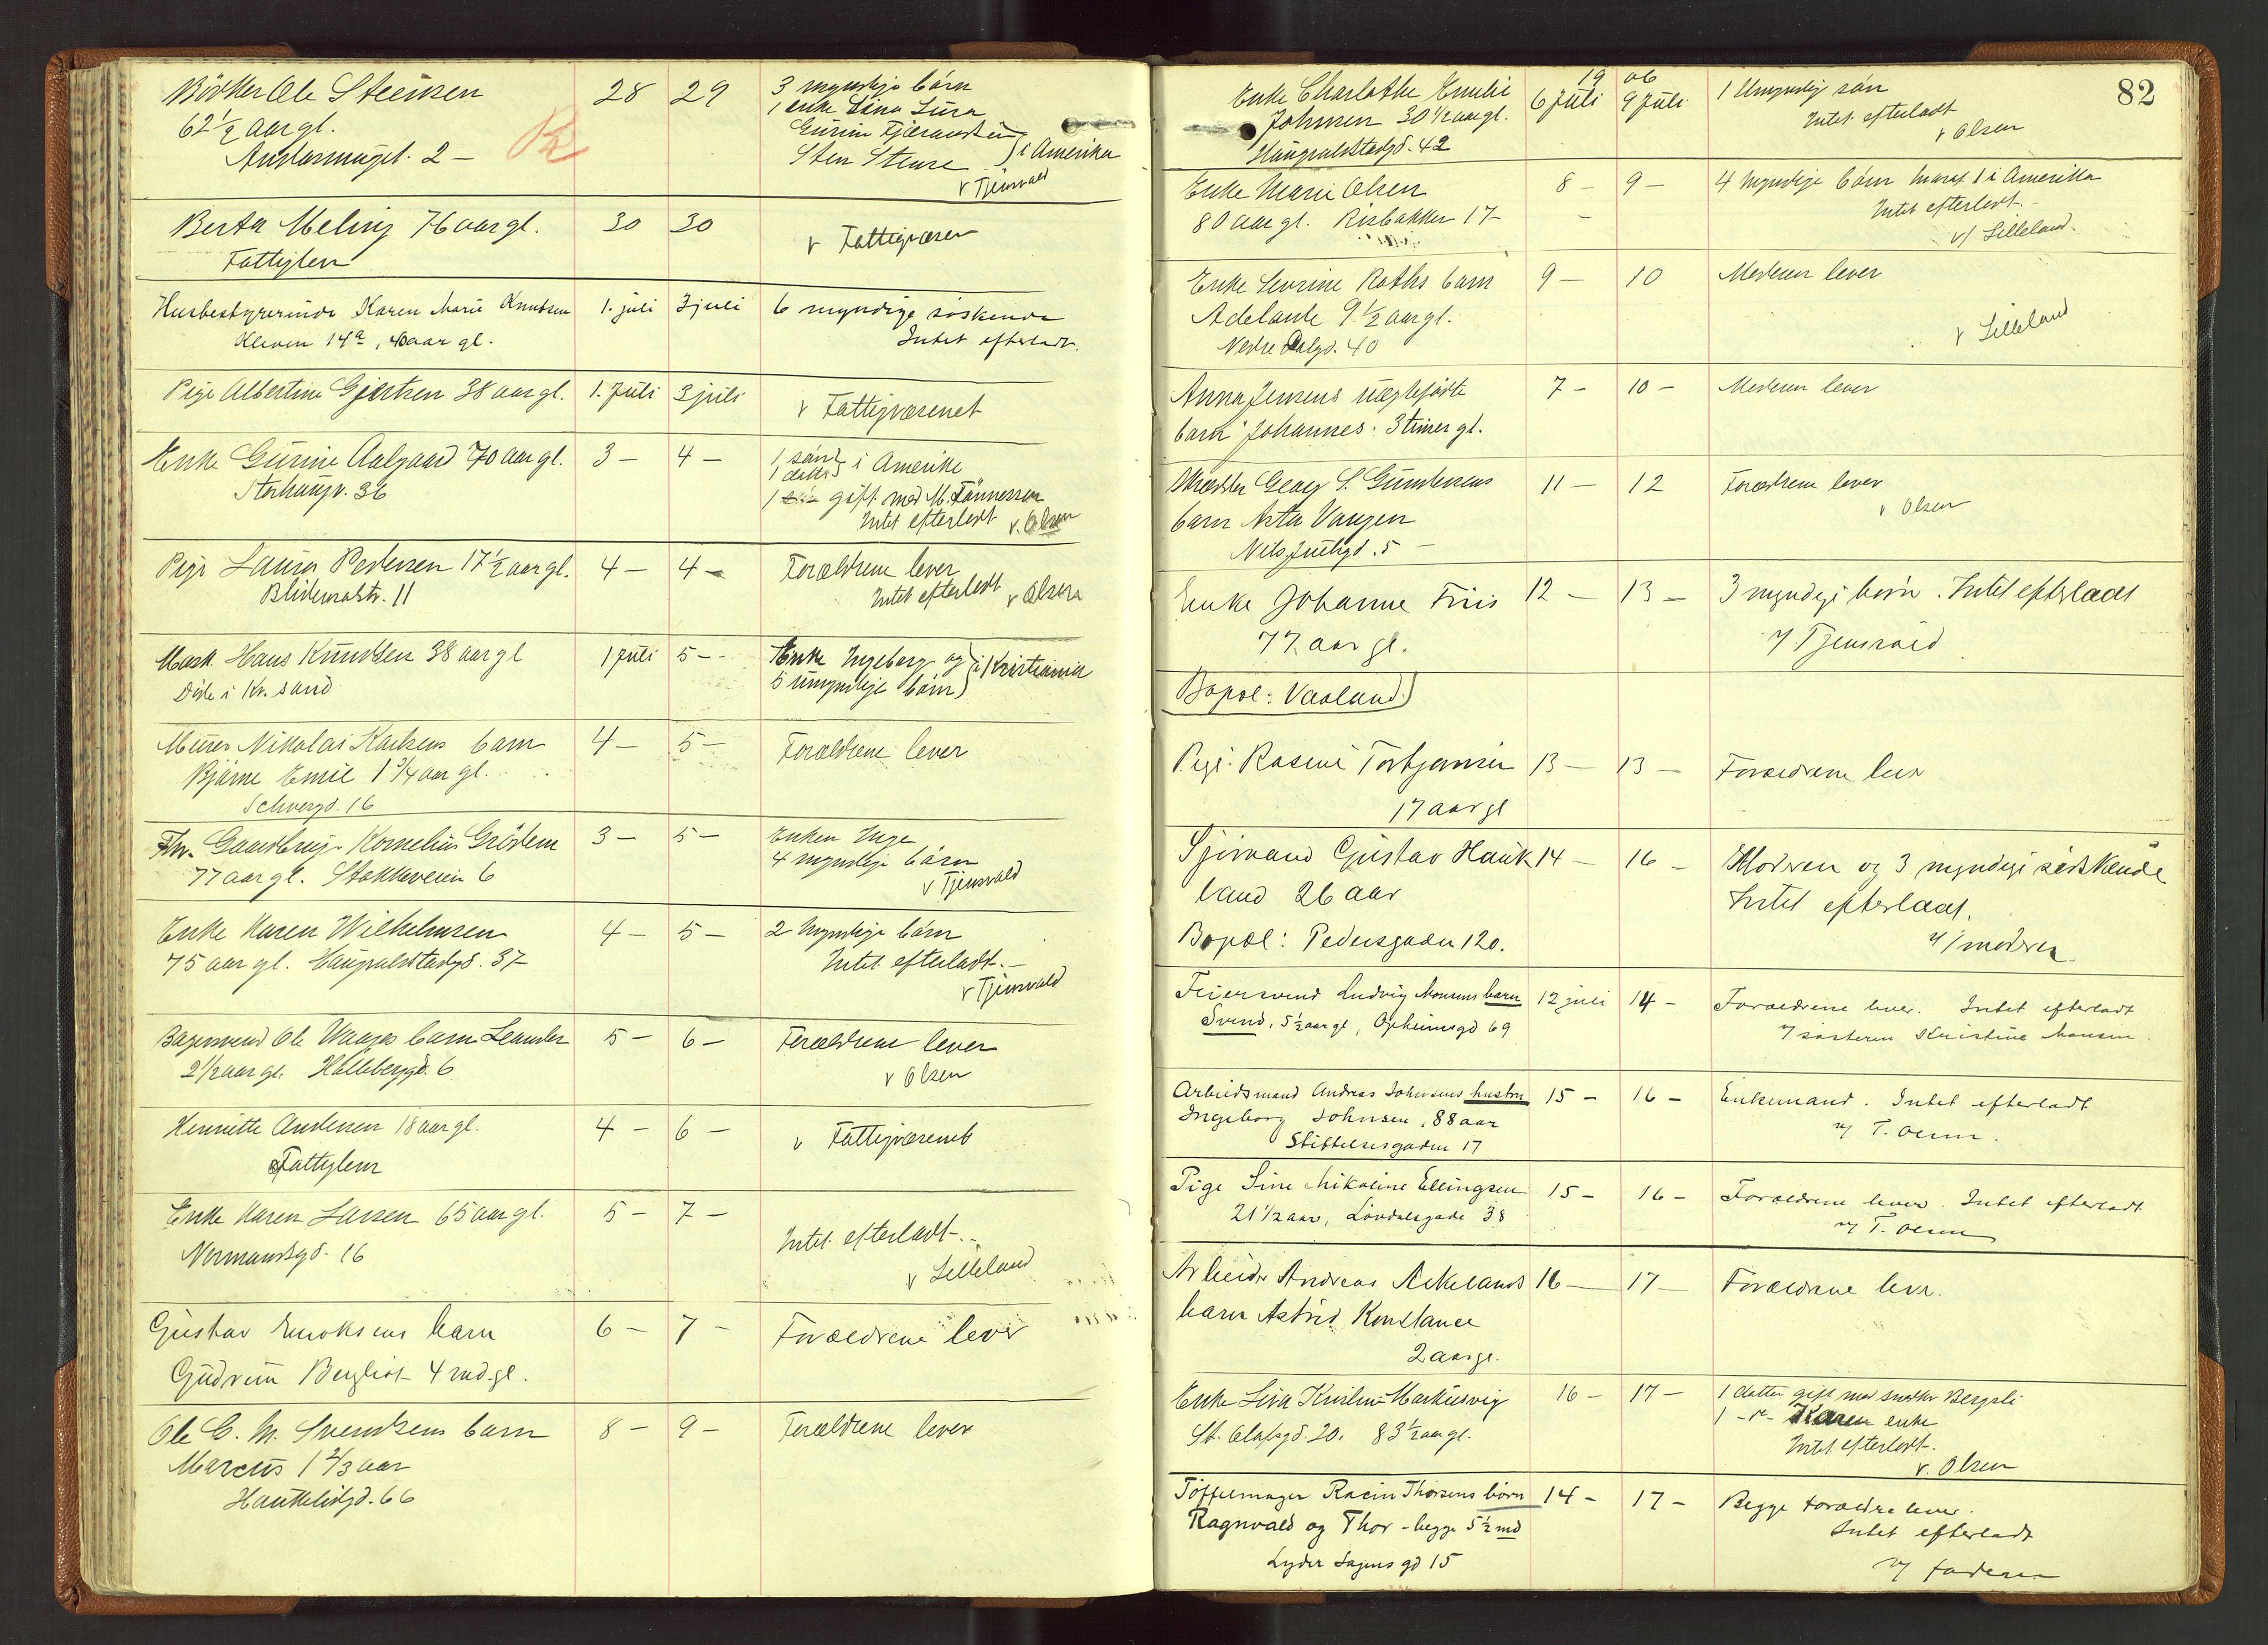 Ole Steensen 28 29 3 myndige børn
62½ aar gl. 1 enke Lina Lura
2 – i Amerika
Sten Stense
v Tjensvold
Berta Meling 76 aar gl. 30 30 v Fattigvæsen
Fattiglem
Husbestyrerinde Karen Marie Knudsen 1. juli 3 juli 6 myndige søskende
Kleven 14a, 40 aar gl. Intet efterladt.
Pige Albertine Gjertsen 38 aar gl. 1. Juli 3 juli v Fattigvæsenet
Enke Gurine Aalgaard 70 aar gl. 3 – 4 – 1 søn
1 datter i Amerika
Storhaugv. 36 1 gift med M. Tønnessen
Intet efterladt v. Olsen
Pige Laura Pedersen 17½ aar gl. 4 – 4 – Forældrene lever
11 Intet efterladt v Olsen
Mask. Hans Knudsen 38 aar gl 1 Juli 5 – Enke Ingeborg og
Døde i Kr. sand 5 umyndige børn i Kristiania
Murer Nikolai Karlsens barn 4 – 5 – Forældrene lever
Bjarne Emil 1 3/4 aar gl.
16
Fhv. Gaardbrug. Kornelius Grødem 3 – 5 – Enken Inge
77 aar gl. Stokkeveien 6 4 myndige børn
v Tjensvold
Enke Karen Wilhelmsen 4 – 5 – 2 myndige børn
75 aar gl. Haugvaldstadgd. 37 Intet efterladt. –
v Tjensvold
Bagersvend Ole Waages barn Leander 5 – 6 – Forældrene lever
2½ aar gl. 6 v Olsen
Henriette Andersen 18 aar gl. 4 – 6 – v Fattigvæsenet
Fattiglem
Enke Karen Larsen 65 aar gl. 5 – 7 –
Normandsgd. 16 Intet efterladt –
v Lilleland
Gustav Enoksens barn 6 – 7 – Forældrene lever
Gudrun Bergliot 4 md. gl.
Ole C. M. Svendsens barn 8 – 9 – Forældrene lever
Marcus 1 2/3 aar
Haukeligd. 66
82
19 06
Enke Charlotte Emilie 6 Juli 9 Juli 1 Umyndig søn
Johnsen 30½ aar gl. Intet efterladt
Haugvaldstadgd. 42 v Olsen
Enke Marie Olsen 8 – 9 – 4 myndige børn hvoraf 1 i Amerika
80 aar gl. Risbakken 17 – Intet efterladt. –
v/ Lilleland.
Enke Sevrine Roths barn 9 – 10 Moderen lever
Adelaide 9½ aar gl.
Nedre Dalgd. 40 v Lilleland
Anna Jensens uægtefødte 7 – 10 – Moderen lever
barn Johannes. 3 timer gl.
Skrædder Georg S. Gundersens 11 – 12 Forældrene lever
barn Asta v Olsen
Nils Juelsgd. 5 –
Enke Johanne Friis 12 – 13 – 3 myndige børn. Intet efterladt
77 aar gl. v/ Tjensvold
Bopæl: Vaaland.
Pige: Rasine Torbjørnsen 13 – 13 – Forældrene lever
17 aar gl
Sjømand Gustav Hauk 14 – 16 – Moderen og 3 myndige sødskende
land 26 aar Intet efterladt.
Bopæl: Pedersgaden 120. v/ moderen
Feiersvend Ludvig Monsens barn 12 juli 14 – Forældrene lever. Intet efterladt
Svend, 5½ aar gl, Opheimsgd 69 v/ søsteren Kristine Monsen.
Arbeidsmand Andreas Johnsens hustru 15 – 16 – Enkemand. Intet efterladt
Ingeborg Johnsen, 88 aar v/ T. Olsen.
Stiftelsesgaden 17
Pige Sine Nikoline Ellingsen 15 – 16 – Forældrene lever. Intet efterladt
21½ aar, Løvdalsgade 38 v/ T. Olsen
Arbeider Andreas Aekelands 16 – 17 – Forældrene lever.
barn Astrid Konstance
2 aar gl.
Enke Lisa Karline Markusvig 16 – 17 – 1 datter gift med snedker Bergsli
St. Olafsgd. 20. 83½ aar gl. 1 – do – Karen enke
Intet efterladt.
v. Olsen
Tøffelmager Racin Thorsens børn 14 – 17 – Begge forældre lever.
Ragnvald og Thor – begge 5½ md Intet efterladt
Lyder Sagens gd 15 v/ faderen